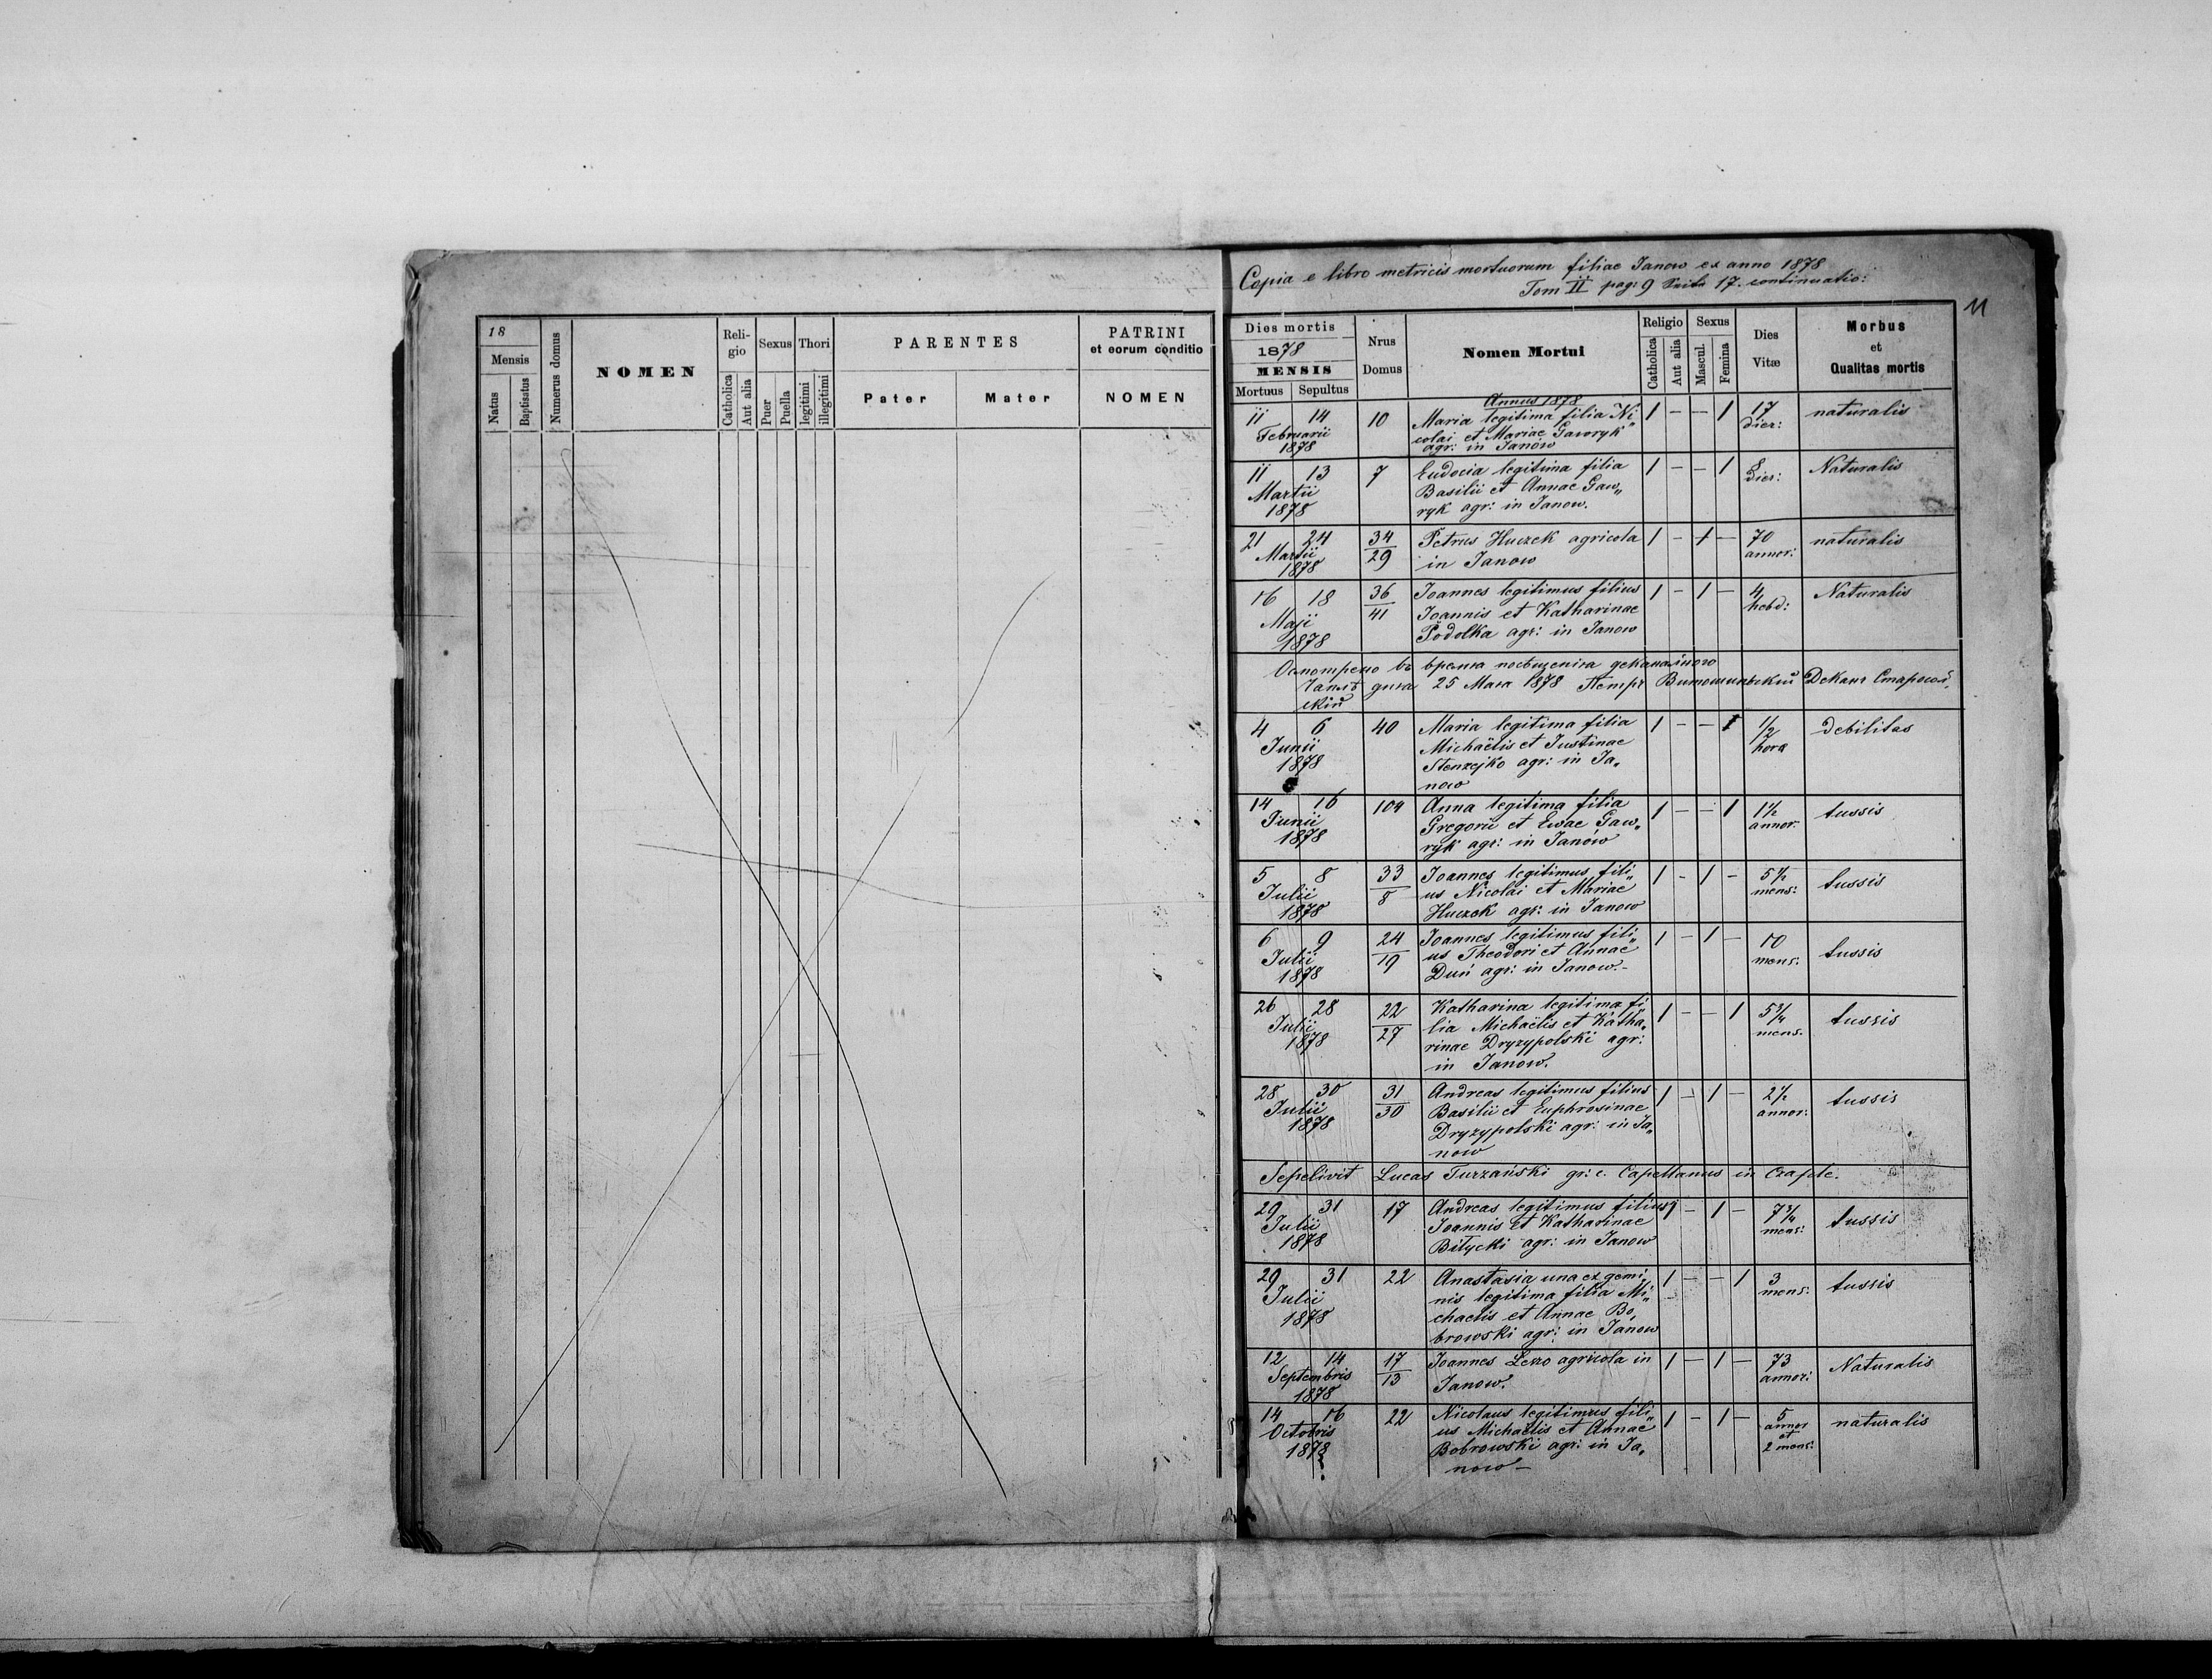 18
Mensis
Natus
Baptisatus
Numerus domus
NOMEN
Religio
Catholica
Aut alia
Sexus
Puer
Puella
Thori
legitimi
illegitimi
PARENTES
Pater
Mater
PATRINI
et eorum conditio
NOMEN
Copia e libro metricis mortuorum filiae Janow ex anno 1878
Tom II pag: 9 17. continuatio:
11
Dies mortis
1878
MENSIS
Mortuus Sepultus
Nrus
Domus
Nomen Mortui
Religio
Catholica
Aut alia
Sexus
Mascul.
Femina
Dies
Vitæ
Morbus
et
Qualitas mortis
Annus 1878
11 14 10 Maria legitima filia Ni„ 1 – – 1 17 naturalis
Februarii colai et Mariae Gawryk dier:
1878 agr: in Janów
11 13 7 Eudocia legitima filia 1 – – 1 8 Naturalis
Martii Basilii et Annae Gaw„ dier:
1878 ryk agr: in Janow.
21 24 34/29 Petrus Huczek agricola 1 – 1 – 70 naturalis
Martii in Janow annor:
1878
16 18 36/41 Joannes legitimus filius 1 – 1 – 4 Naturalis
Maji Joannis et Katharinae hebd:
1878 Podolka agr: in Janow
Осмотрено въ время посѣщенія деканального
дня 25 Мая 1878 Петръ Деканъ Старосол„
скій
4 6 40 Maria legitima filia 1 – – 1 1/2 debilitas
Junii Michaëlis et Justinae hora
1878 Stenzejko agr: in Ja„
now
14 16 104 Anna legitima filia 1 – – 1 1½ tussis
Junii Gregorii et Ewae Gaw„ annor.
1878 ryk agr: in Janów
5 8 33/8 Joannes legitimus fili„ 1 – 1 – 5½ tussis
Julii us Nicolai et Mariae mens:
1878 Huczek agr: in Janow
6 9 24/19 Joannes legitimus fili„ 1 – 1 – 10 tussis
Julii us Theodori et Annae mens:
1878 Duń agr: in Janow. –
26 28 22/27 Katharina legitima fi„ 1 – – 1 5¾ tussis
Julii lia Michaëlis et Katha„ mens.
1878 rinae Dryzypolski agr:
in Janow.
28 30 31/30 Andreas legitimus filius 1 – 1 – 2½ tussis
Julii Basilii et Euphrosinae annor:
1878 Dryzypolski agr: in Ja„
now
Sepelivit Lucas Turzański gr: c. Capellanus in Czaple.
29 31 17 Andreas legitimus filius 1 – 1 – 7¾ tussis
Julii Joannis et Katharinae mens:
1878 Bilycki agr: in Janow
29 31 22 Anastasia una ex gemi„ 1 – – 1 3 tussis
Julii nis legitima filia Mi„ mens:
1878 chaelis et Annae Bo„
browski agr: in Janow
12 14 17/13 Joannes agricola in 1 – 1 – 73 Naturalis
Septembris Janow. annor:
1878
14 16 22 Nicolaus legitimus fili„ 1 – 1 – 5 naturalis
Octobris us Michaëlis et Annae annor
1878 Bobrowski agr: in Ja„ et
now – 2 mens: